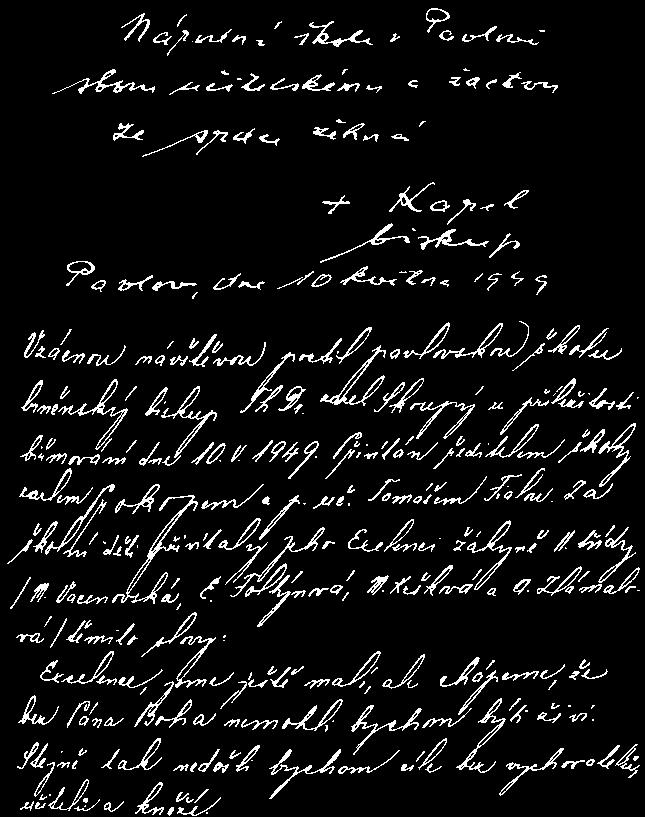 Národní škole v Pavlově
sboru učitelskému a žactvu
ze srdce žehná
+ Karel
biskup
Pavlov, dne 10 května 1949
Vzácnou návštěvou poctil pavlovskou školu
brněnský biskup Th Dr. Karel Skoupý u příležitosti
biřmování dne 10. V. 1949. Přivítán ředitelem školy
Karlem Prokopem a p. uč. Tomášem Fialou. Za
školní děti přivítaly jeho Excelenci žákyně II. třídy
/ M. Vacenovská, E. Foltýnová, M. a A. Zlámalo-
vá / těmito slovy:
Excelence, jsme ještě malí, ale chápeme, že
bez Pána Boha nemohli bychom býti živi.
Stejně tak nedošli bychom cíle bez vychovatelů,
učitelů a kněží.